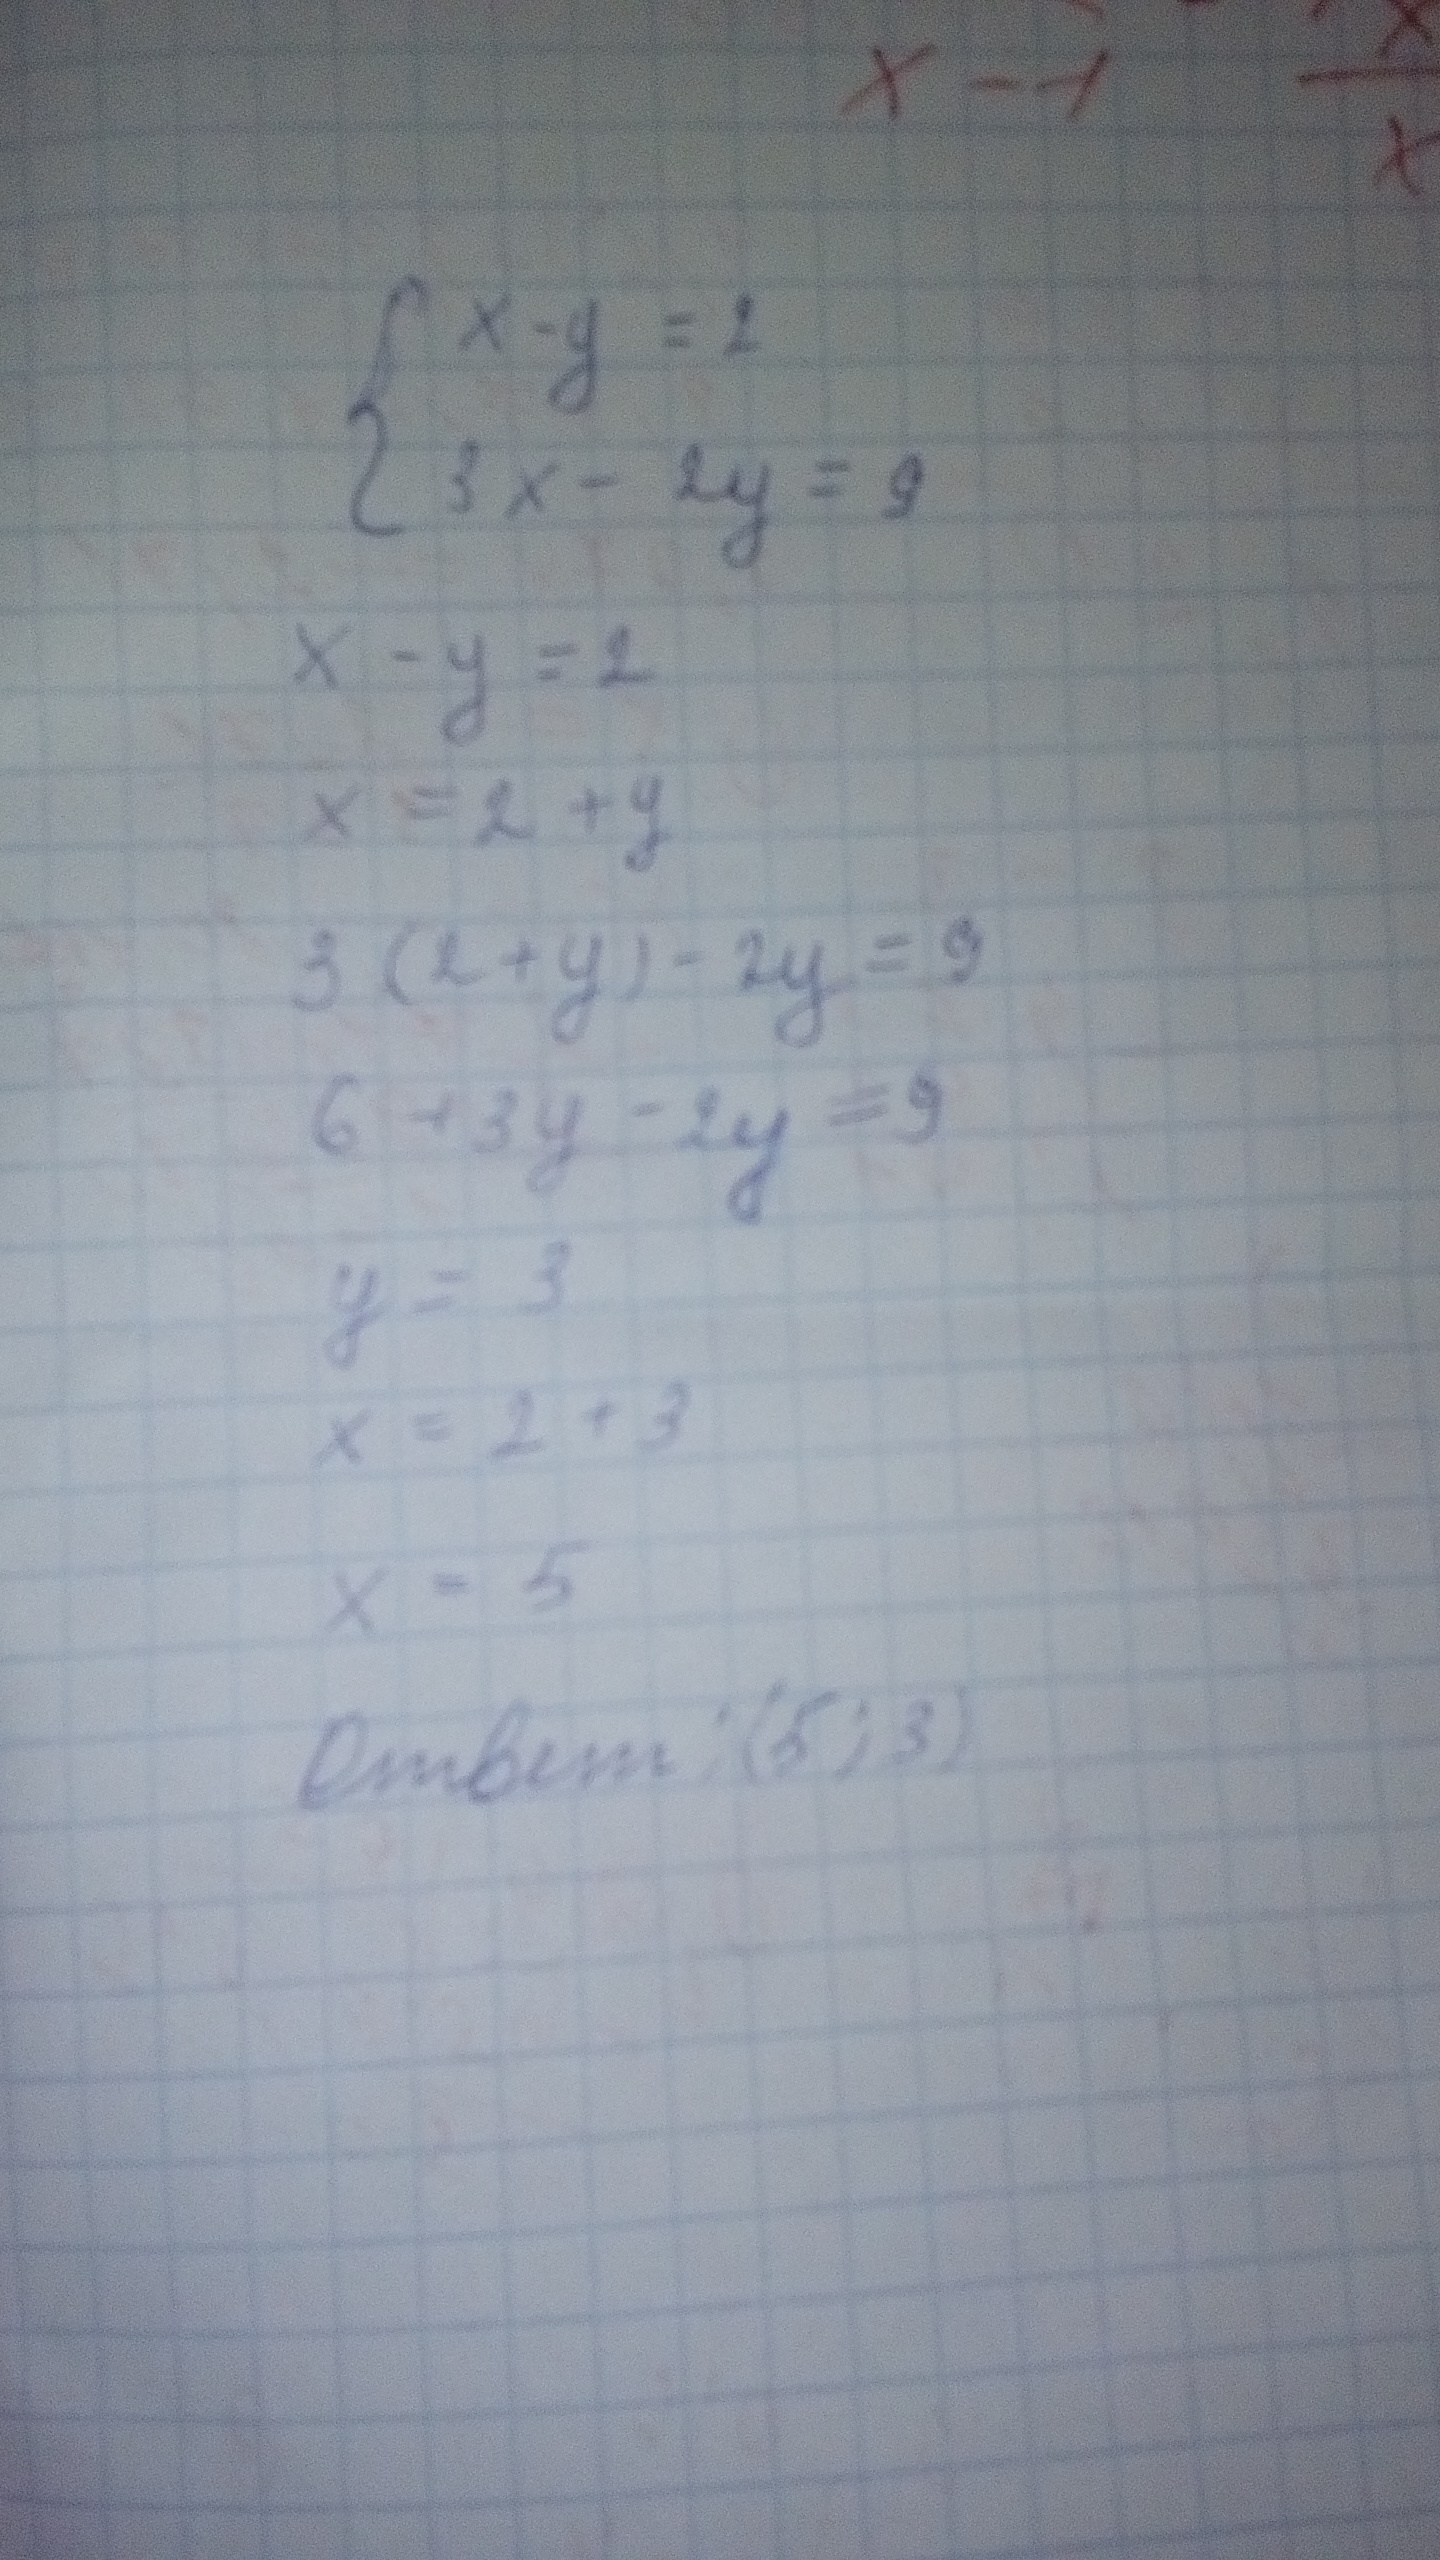 x - 1
x
x
{ x - y = 2
3x - 2y = 9
x - y = 2
x = 2 + y
3 (2 + y) - 2y = 9
6 + 3y - 2y = 9
y = 3
x = 2 + 3
x = 5
Ответ: (5; 3)